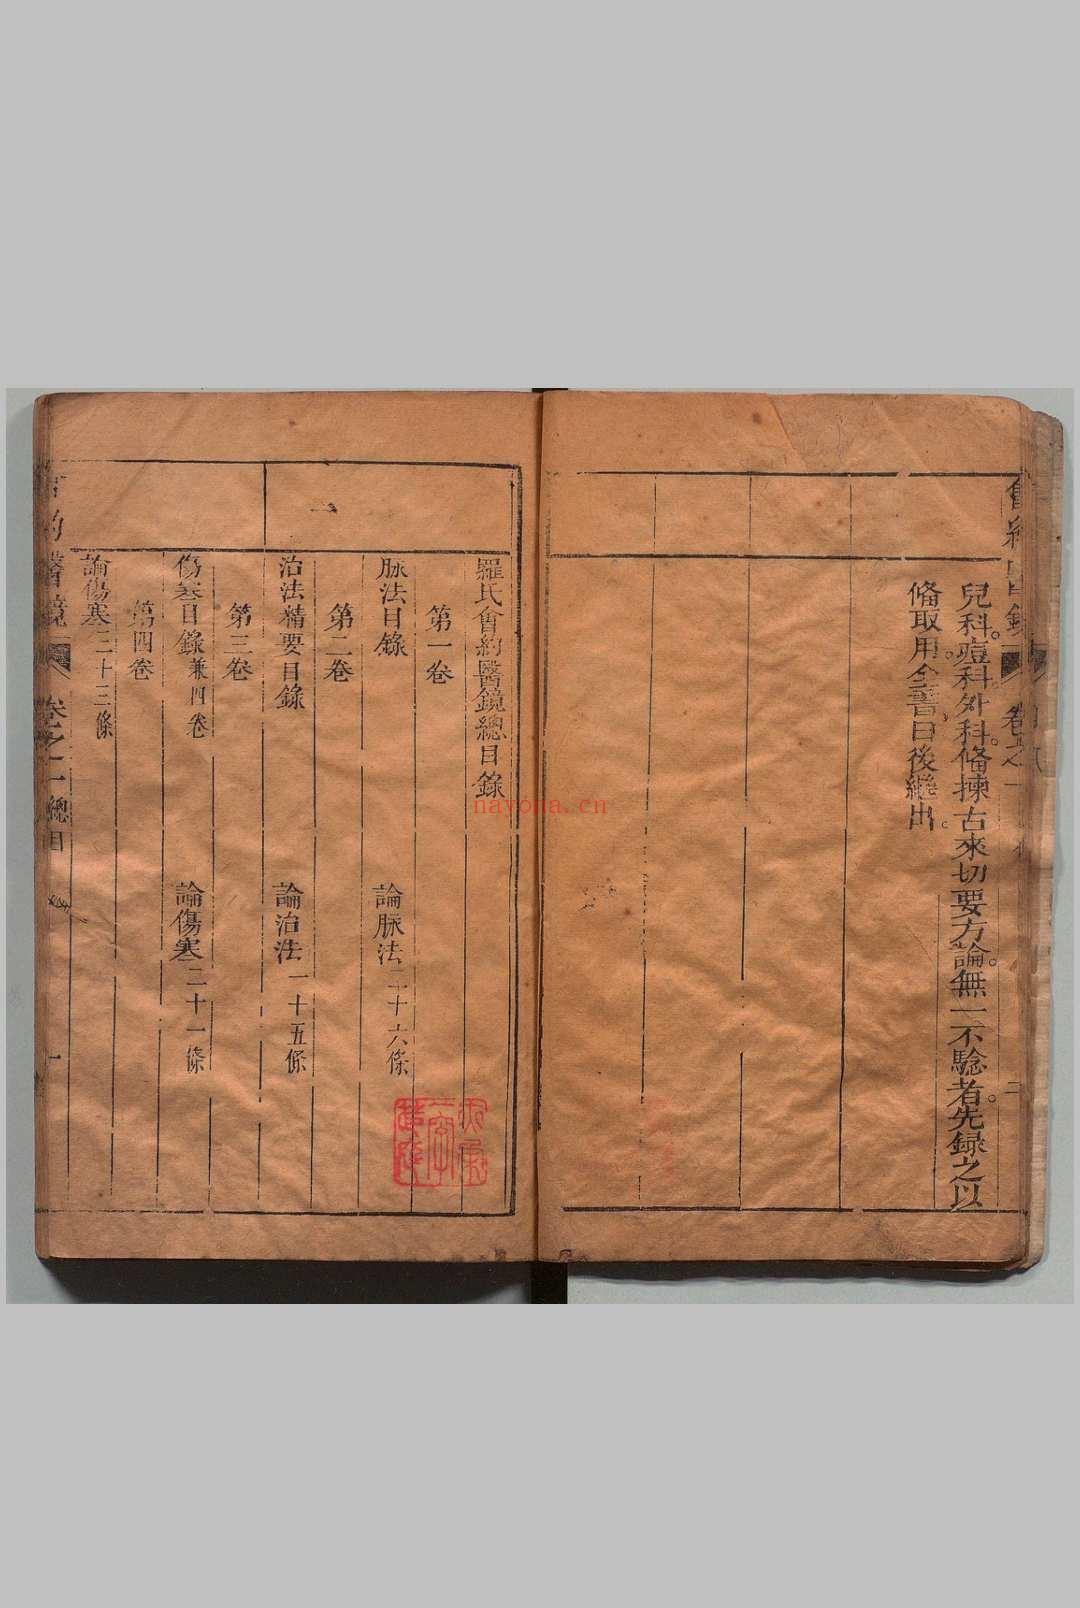 兒科。痘科。外科。俻揀古來切要方論。無一不驗者。先録之以
俻取用全書日後繼出。
羅氏會約醫鏡總目錄
第一卷
脉法目錄 論脈法二十六條
第二卷
治法精要目錄 論治法一十五條
第三卷
傷寒目錄兼四卷 論傷寒二十一條
第四卷
論傷寒三十三條
醫鏡 卷之一 總目 一
一
nayona.cn